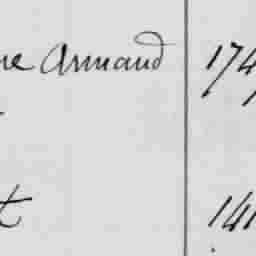 ne Armand 174
t 141